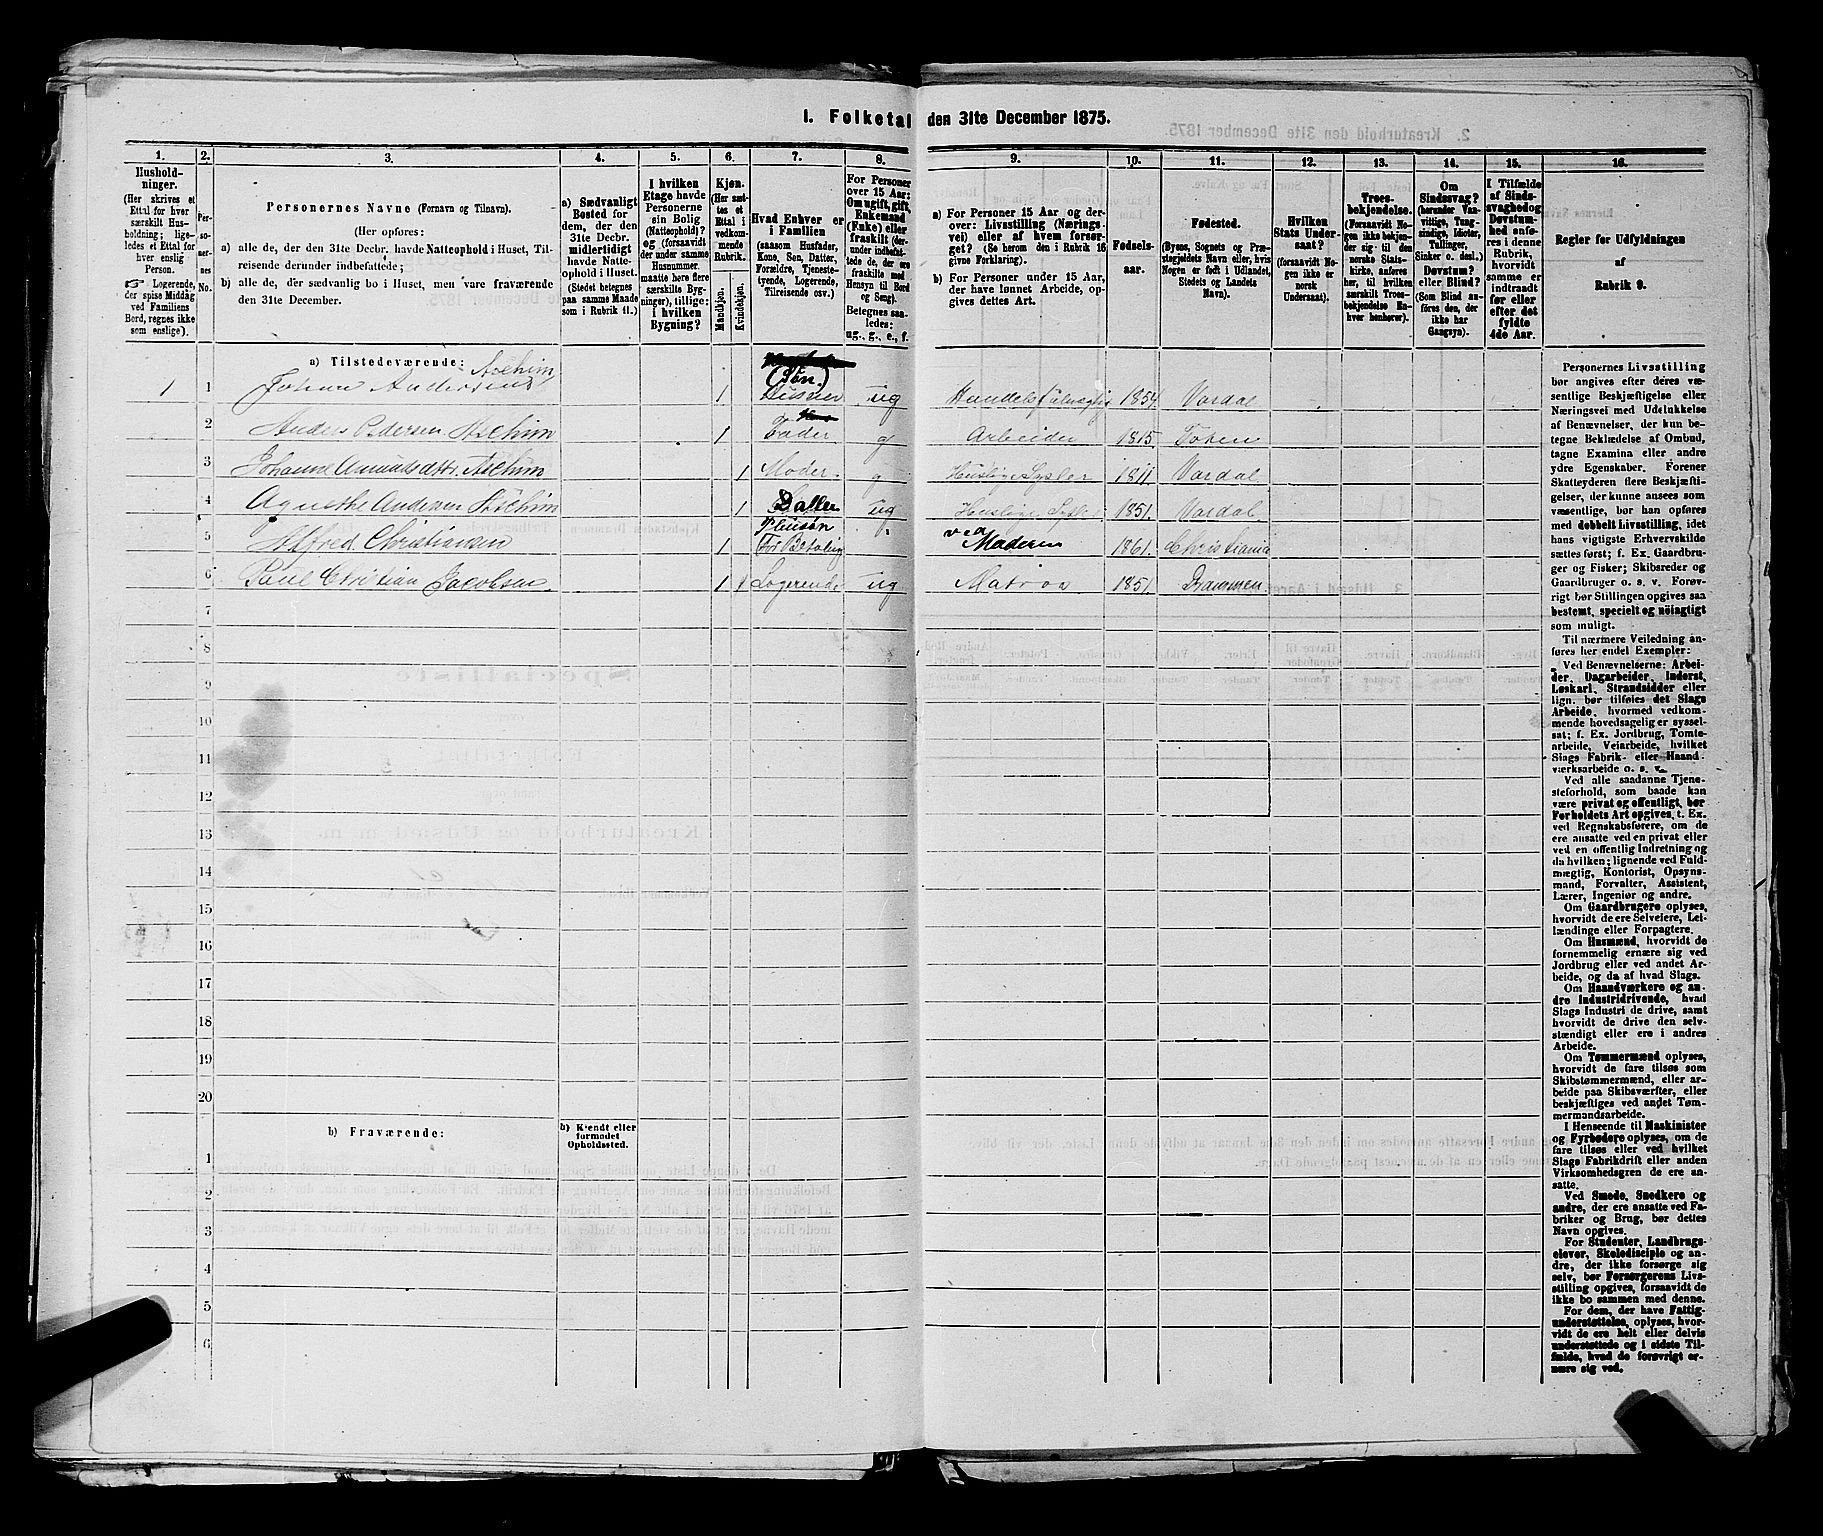 I. Folketal den 31te December 1875.
1.
Husholdninger.
(Her skrives et
Ettal for hver
særskilt Husholdning;
ligeledes et Ettal for
hver enslig
Person.
Logerende,
der spise Middag
ved Familiens
Bord, regnes ikke
som enslige).
2.
Personernes
No.
3.
Personernes Navne (Fornavn og Tilnavn).
(Her opføres:
a) alle de, der den 31te Decbr. havde Natteophold i Huset, Tilreisende derunder indbefattede;
b) alle de, der sædvanlig bo i Huset, men vare fraværende
den 31te December.
4.
a) Sædvanligt
Bosted for
dem, der den
31te Decbr.
midlertidigt
havde Natteophold i Huset.
(Stedet betegnes
paa samme Maade
som i Rubrik 11.)
5.
I hvilken
Etage havde
Personerne
sin Bolig
(Natteophold)?
og (forsaavidt
der under samme
Husnummer.
maatte høre flere
særskilte Bygninger), tillige:
i hvilken
Bygning?
6.
Kjøn.
(Her sættes et
Ettal i
vedkommende
Rubrik.
Mandkjøn.
Kvindekjøn.
7.
Hvad Enhver er
i Familien
(saasom Husfader,
Kone, Søn, Datter,
Forældre, Tjenestetyende, Logerende,
Tilreisende osv.)
8.
For Personer
over 15 Aar:
Om ugift, gift,
Enkemand
(Enke) eller
fraskilt
Betegnes saaledes:
ug., g., e., f.
9.
a) For Personer 15 Aar og derover: Livsstilling (Næringsvei) eller af hvem forsørget? (Se herom den i Rubrik 16
givne Forklaring).
b) For Personer under 15 Aar,
der have lønnet Arbeide, opgives dettes Art.
10.
Fødselsaar.
11.
Fødested.
(Byens, Sognets og Præstegjeldets Navn eller, hvis
Nogen er født i Udlandet,
Stedets og Landets
Navn).
12.
Hvilken
Stats Undersaat?
(forsaavidt Nogen ikke er
norsk
Undersaat).
13.
Troesbekjendelse.
(Forsaavidt Nogen ikke bekjender sig til den
norske Statskirke, anføres
her, til hvilken
særskilt Troesbekjendelse Enhver henhører).
14.
Om
Sindssvag?
(herunder Vanvittige, Tungsindige, Idioter,
Tullinger,
Sinker o. desl.)
Døvstum?
eller Blind?
(Som Blind anføres den, der
ikke har
Gangsyn).
15.
I Tilfælde
af Sindssvaghed og
Døvstumhed anføres i denne
Rubrik,
hvorvidt
samme er
indtraadt
før eller
efter det
fyldte
4de Aar.
16.
Regler for Udfyldningen
af
Rubrik 9.
a) Tilstedeværende:
1 1 Johan Andersen Aschim 1 (Søn.) ug Handelsfulmægtig 1854. Vardal
2 Anders Pedersen Aschim 1 Fader g Arbeider 1815 Toten
3 Johanne Amundsdttr. Aschim 1 Moder g Huslige Sysler 1811. Vardal
4 Agnethe Andersen Aschim 1 Datter ug Huslige Sysler 1851. Vardal
5 Alfred Christiansen 1 Pleisøn For Betaling 1861. Christiania
6 Paul Christian Jacobsen 1 1 Logerende ug Matros 1851 Drammen
7
8
9
10
11
12
13
14
15
16
17
18
19
20
b) Fraværende:
b) Kjendt eller
formodet
Opholdssted.
1
2
3
4
5
6
Personernes Livsstilling
bør angives efter deres væsentlige Beskjæftigelse eller
Næringsvei med Udelukkelse
af Benævnelser, der kun betegne Beklædelse af Ombud,
tagne Examina eller andre
ydre Egenskaber. Forener
Skatteyderen flere Beskjæftigelser, der kunne ansees som
væsentlige, bør han opføres
med dobbelt Livsstilling, idet
hans vigtigste Erhvervskilde
sættes først; f. Ex. Gaardbruger og Fisker; Skibsreder og
Gaardbruger o. s. v. Forøvrigt bør Stillingen opgives saa
bestemt, specielt og nöiagtigt
som muligt.
Til nærmere Veiledning anføres her endel Exempler:
Ved Benævnelserne: Arbeider, Dagarbeider, Inderst,
Løskarl, Strandsidder eller
lign. bør tilføies det Slags
Arbeide, hvormed vedkommende hovedsagelig er sysselsat; f. Ex. Jordbrug, Tomtearbeide, Veiarbeide, hvilket
Slags Fabrik- eller Haandværksarbeide o. s. v.
Ved alle saadanne Tjenesteforhold, som baade kan
være privat og offentligt, bør
Forholdets Art opgives, t. Ex.
ved Regnskabsførere, om de
ere ansatte ved en privat eller
ved en offentlig Indretning og
da hvilken; lignende ved Fuldmægtig, Kontorist, Opsynsmand, Forvalter, Assistent,
Lærer, Ingeniør og andre.
Om Gaardbrugere oplyses,
hvorvidt de ere Selveiere, Leilændinge eller Forpagtere.
Om Husmænd, hvorvidt de
fornemmelig ernære sig ved
Jordbrug eller ved andet Arbeide, og da af hvad Slags.
Om Haandværkere og andre Industridrivende, hvad
Slags Industri de drive, samt
hvorvidt de drive den selvstændigt eller ere i andres
Arbeide.
Om Tømmermænd oplyses,
hvorvidt de fare tilsøs som
Skibstømmermænd, eller arbeide paa Skibsværfter, eller
beskjæftiges ved andet Tømmermandsarbeide.
I Henseende til Maskinister
og Fyrbødere oplyses, om de
fare tilsøs eller ved hvilket
Slags Fabrikdrift eller anden
Virksomhedsgren de ere ansatte.
Ved Smede, Snedkere og
andre, der ere ansatte ved Fabriker og Brug, bør dettes
Navn opgives.
For Studenter, Landbrugselever, Skoledisciple og andre, der ikke forsørge sig
selv, bør Forsørgerens Livsstilling opgives, forsaavidt de
ikke bo sammen med denne.
For dem, der have Fattigunderstøttelse, oplyses, hvorvidt de ere helt eller delvis
understøttede og i sidste Tilfælde, hvad de forøvrigt ernære sig ved.